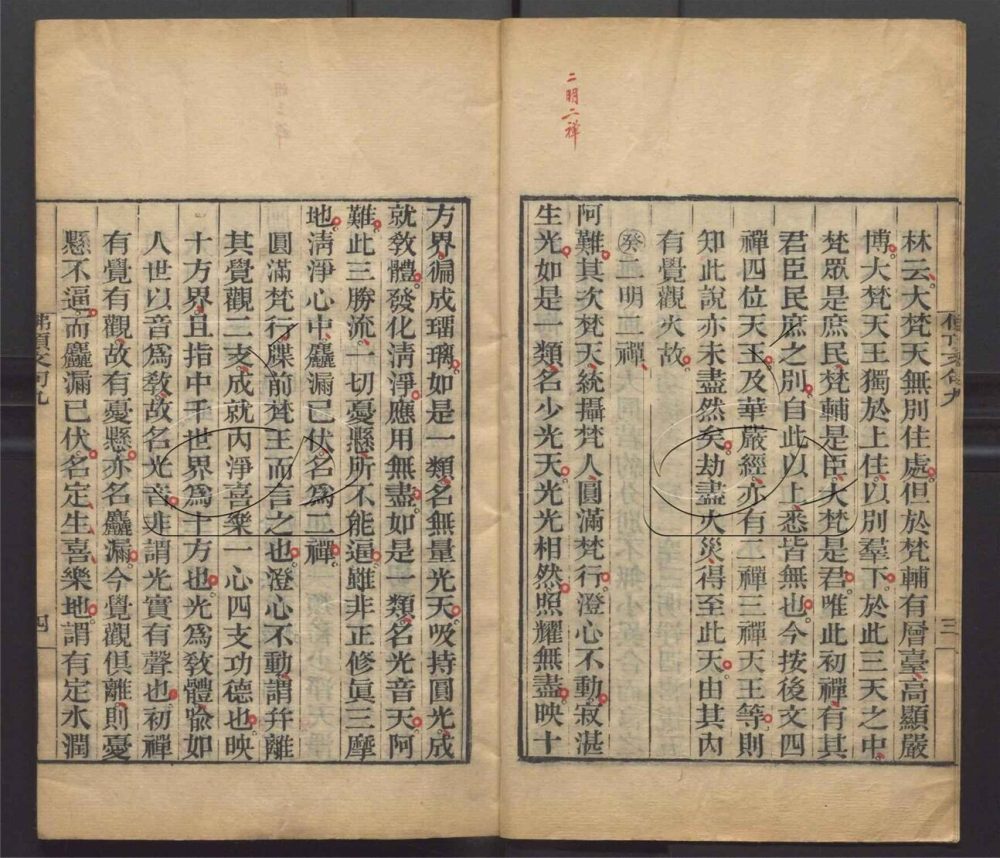 二明二禪
林云大梵天無別住處但於梵輔有層臺高顯嚴
博大梵天王獨於上住以別羣下於此三天之中
梵眾是庶民梵輔是臣大梵是君唯此初禪有其
君臣民庶之別自此以上悉皆無也今按後文四
禪四位天王及華嚴經亦有二禪三禪天王等則
知此說亦未盡然矣劫盡火災得至此天由其內
有覺觀火故
癸二明二禪
阿難其次梵天統攝梵人圓滿梵行澄心不動寂湛
生光如是一類名少光天光光相然照耀無盡映十
三
方界徧成瑠璃如是一類名無量光天吸持圓光成
就教體發化清淨應用無盡如是一類名光音天阿
難此三勝流一切憂懸所不能逼雖非正修真三摩
地清淨心中麤漏已伏名為二禪
圓滿梵行牒前梵王而言之也澄心不動謂幷離
其覺觀二支成就內淨喜樂一心四支功德也映
十方界且指中千世界為十方也光為教體譣如
人世以音為教故名光音非謂光實有聲也初禪
有覺有觀故有憂懸亦名麤漏今覺觀俱離則憂
懸不逼而麤漏已伏名定生喜樂地謂有定水潤
四